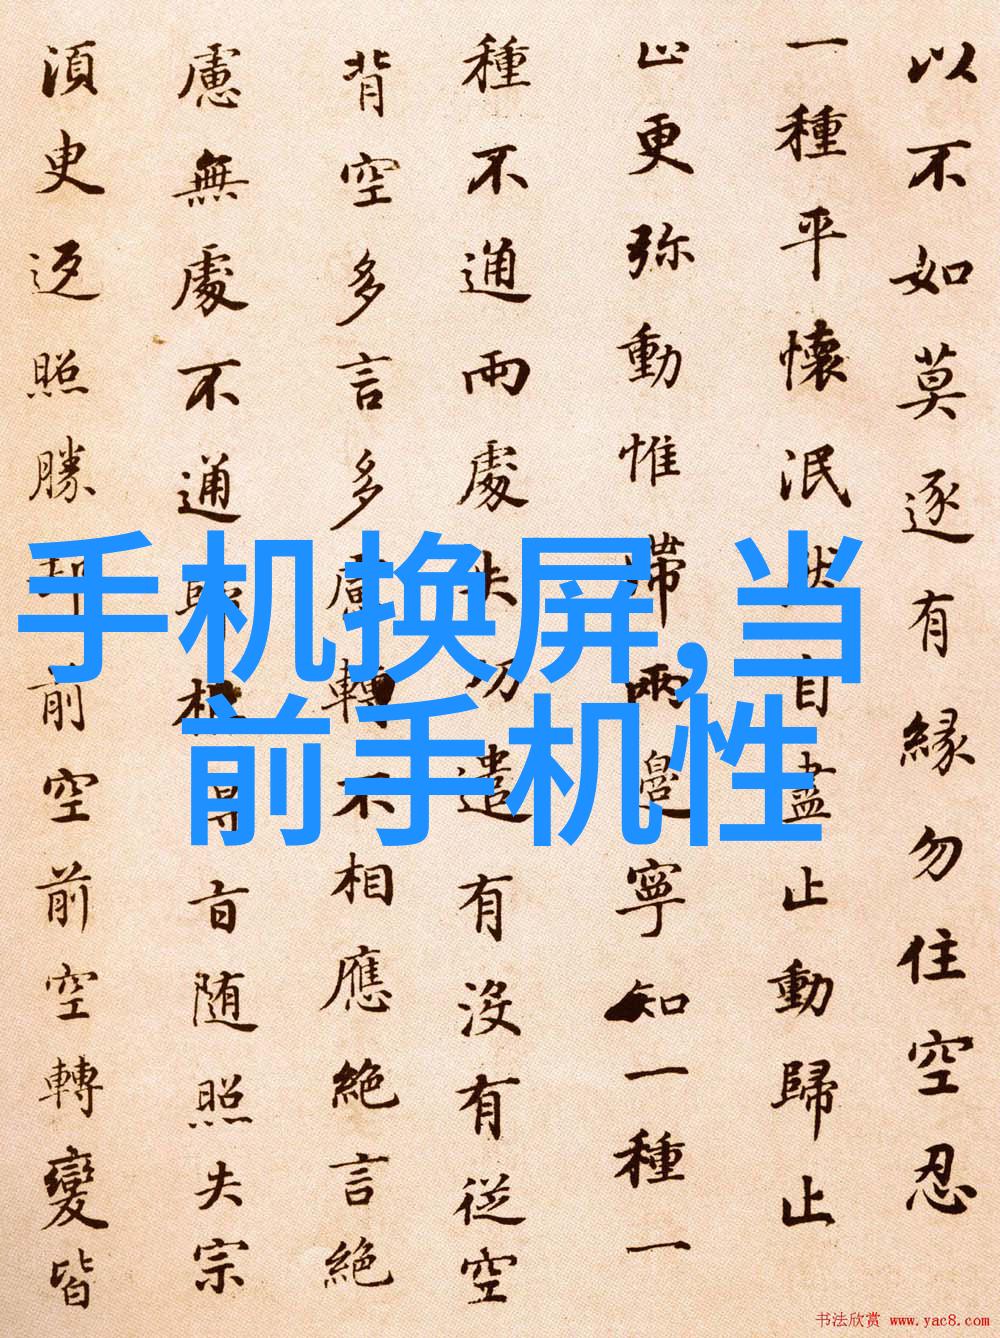 手机换屏,当
前手机性
以不如莫逐有緣勿住空忍
一種平懷泯然自盡止動歸止
止更弥動惟滯兩邊寧知一種一
種不通兩處失功遣有没有從空
背空多言多慮轉不相應絶言絶
慮無處不通歸根得旨随照失宗
湏臾返照勝却前空前空轉變皆
书法欣赏 www.yac8.com